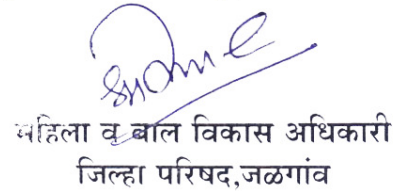 महिला व बाल विकास अधिकारी
जिल्हा परिषद,जळगांव